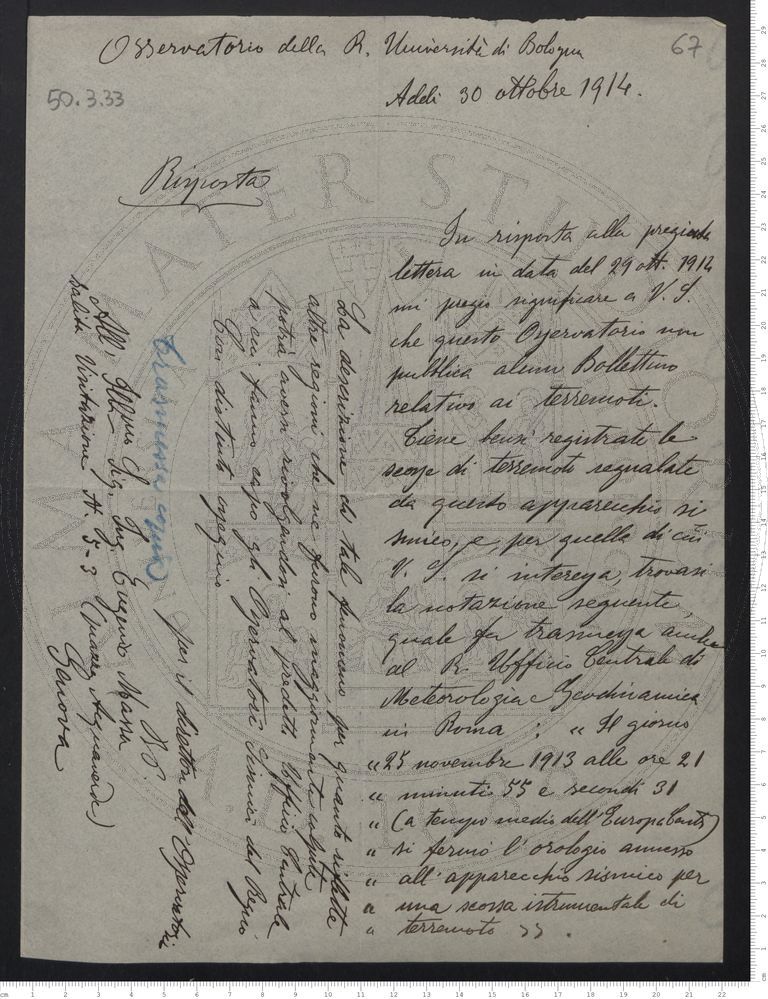 67
Osservatorio della R. Università di Bologna
50.3.33
Addì 30 ottobre 1914.
Risposta
In risposta alla pregiata
lettera in data del 29 ott. 1914
mi pregio significare a V. S.
che questo Osservatorio non
pubblica alcun Bollettino
relativo ai terremoti.
Tiene bensì registrate le
scosse di terremoto segnalate
da questo apparecchio si
smico, e per quella di cui
V. S. si interessa, trovasi
la notazione seguente,
quale fu trasmessa anche
al R. Ufficio Centrale di
Meteorologia e Geodinamica
in Roma : " Il giorno
" 25 novembre 1913 alle ore 21
" minuti 55 e secondi 31
" (a tempo medio dell'Europa Cent.)
" si fermò l'orologio annesso
" all'apparecchio sismico per
" una scossa istrumentale di
" terremoto ".
La descrizione di tale fenomeno, per quanto riflette
altre regioni che ne furono maggiormente colpite
potrà aversi rivolgendosi al predetto Ufficio Centrale
a cui fanno capo gli Osservatori sismici del Regno
Con distinto ossequio
per il direttore dell'Osservatorio
trasmessa copia
All' Illmo Sig. Ing. Eugenio
Salita Visitazione N. 5-3 (piazza Acquaverde)
Genova